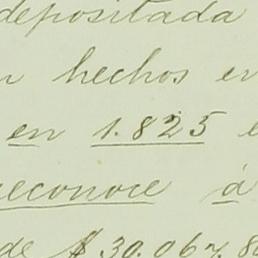 depositada
hechos en
en 1.825
reconoce á
de $ 30.067.8